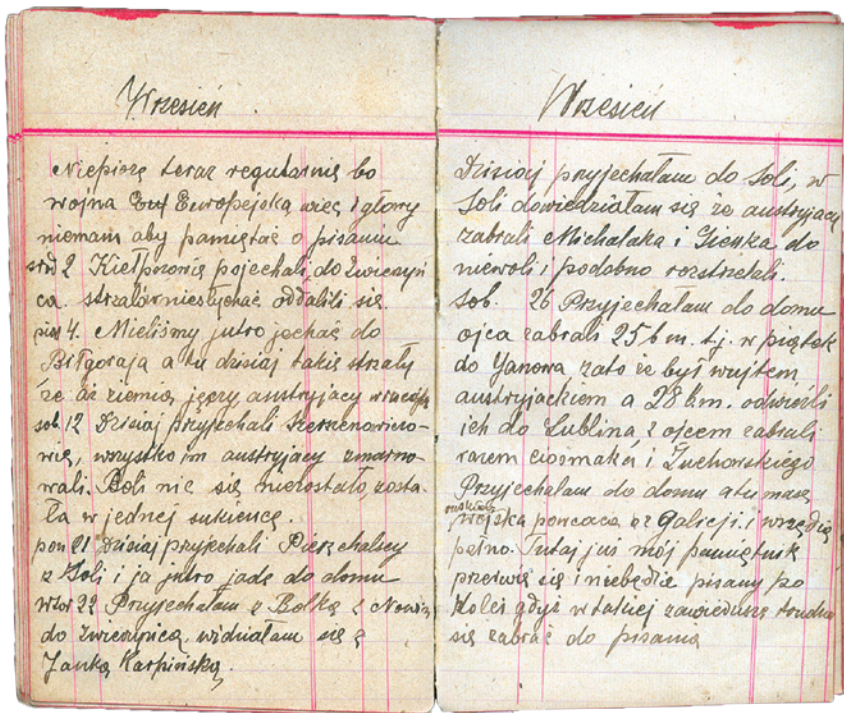 Wrzesień
Niepiszę teraz regularnie bo
wojna Europejska więc i głowy
niemam aby pamiętać o pisaniu
śrd 2 Kiełpszowie pojechali do Zwierzyń
ca. strzałów niesłychać oddalili się.
pią 4. Mieliśmy jutro jechać do
Biłgoraja a tu dzisiaj takie strzały
że aż ziemia jęczy austryjacy
sob. 12 Dzisiaj przyjechali
wie, wszystko im austryjacy zmarno-
wali. Boli nic się niezostało zosta-
ła w jednej sukience.
pon 21 Dzisiaj przyjechali Pierzchalscy
z Soli i ja jutro jadę do domu
wtor 22 Przyjechałam z Bolką z
do Zwierzyńca, widziałam się z
Janką Karpińską.
Wrzesień
Dzisiaj przyjechałam do Soli, w
Soli dowiedziałam się że austryjacy
zabrali Michalaka i Gienka do
niewoli i podobno rozstrzelali.
Sob. 26 Przyjechałam do domu
ojca zabrali 25 b m. t.j. w piątek
do Yanowa zato że był wujtem
austryjackiem a 28 b.m. odwieźli
ich do Lublina z ojcem zabrali
razem ciosmaka i Zuchowskiego
Przyjechałam do domu a tu masę
wojska powraca z Galicji i wszędzie
pełno. Tutaj już mój pamiętnik
przerwie się i niebędzie pisany po
kolei gdyż w takiej zawierusze trudno
się zabrać do pisania